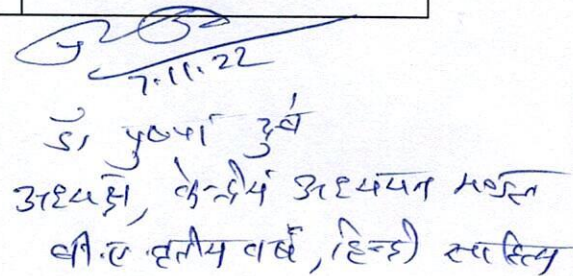 7.11.22
डॉ पुष्पा दुबे
अध्यक्ष, केन्द्रीय अध्ययन मण्डल
बी.ए तृतीय वर्ष, हिन्दी साहित्य